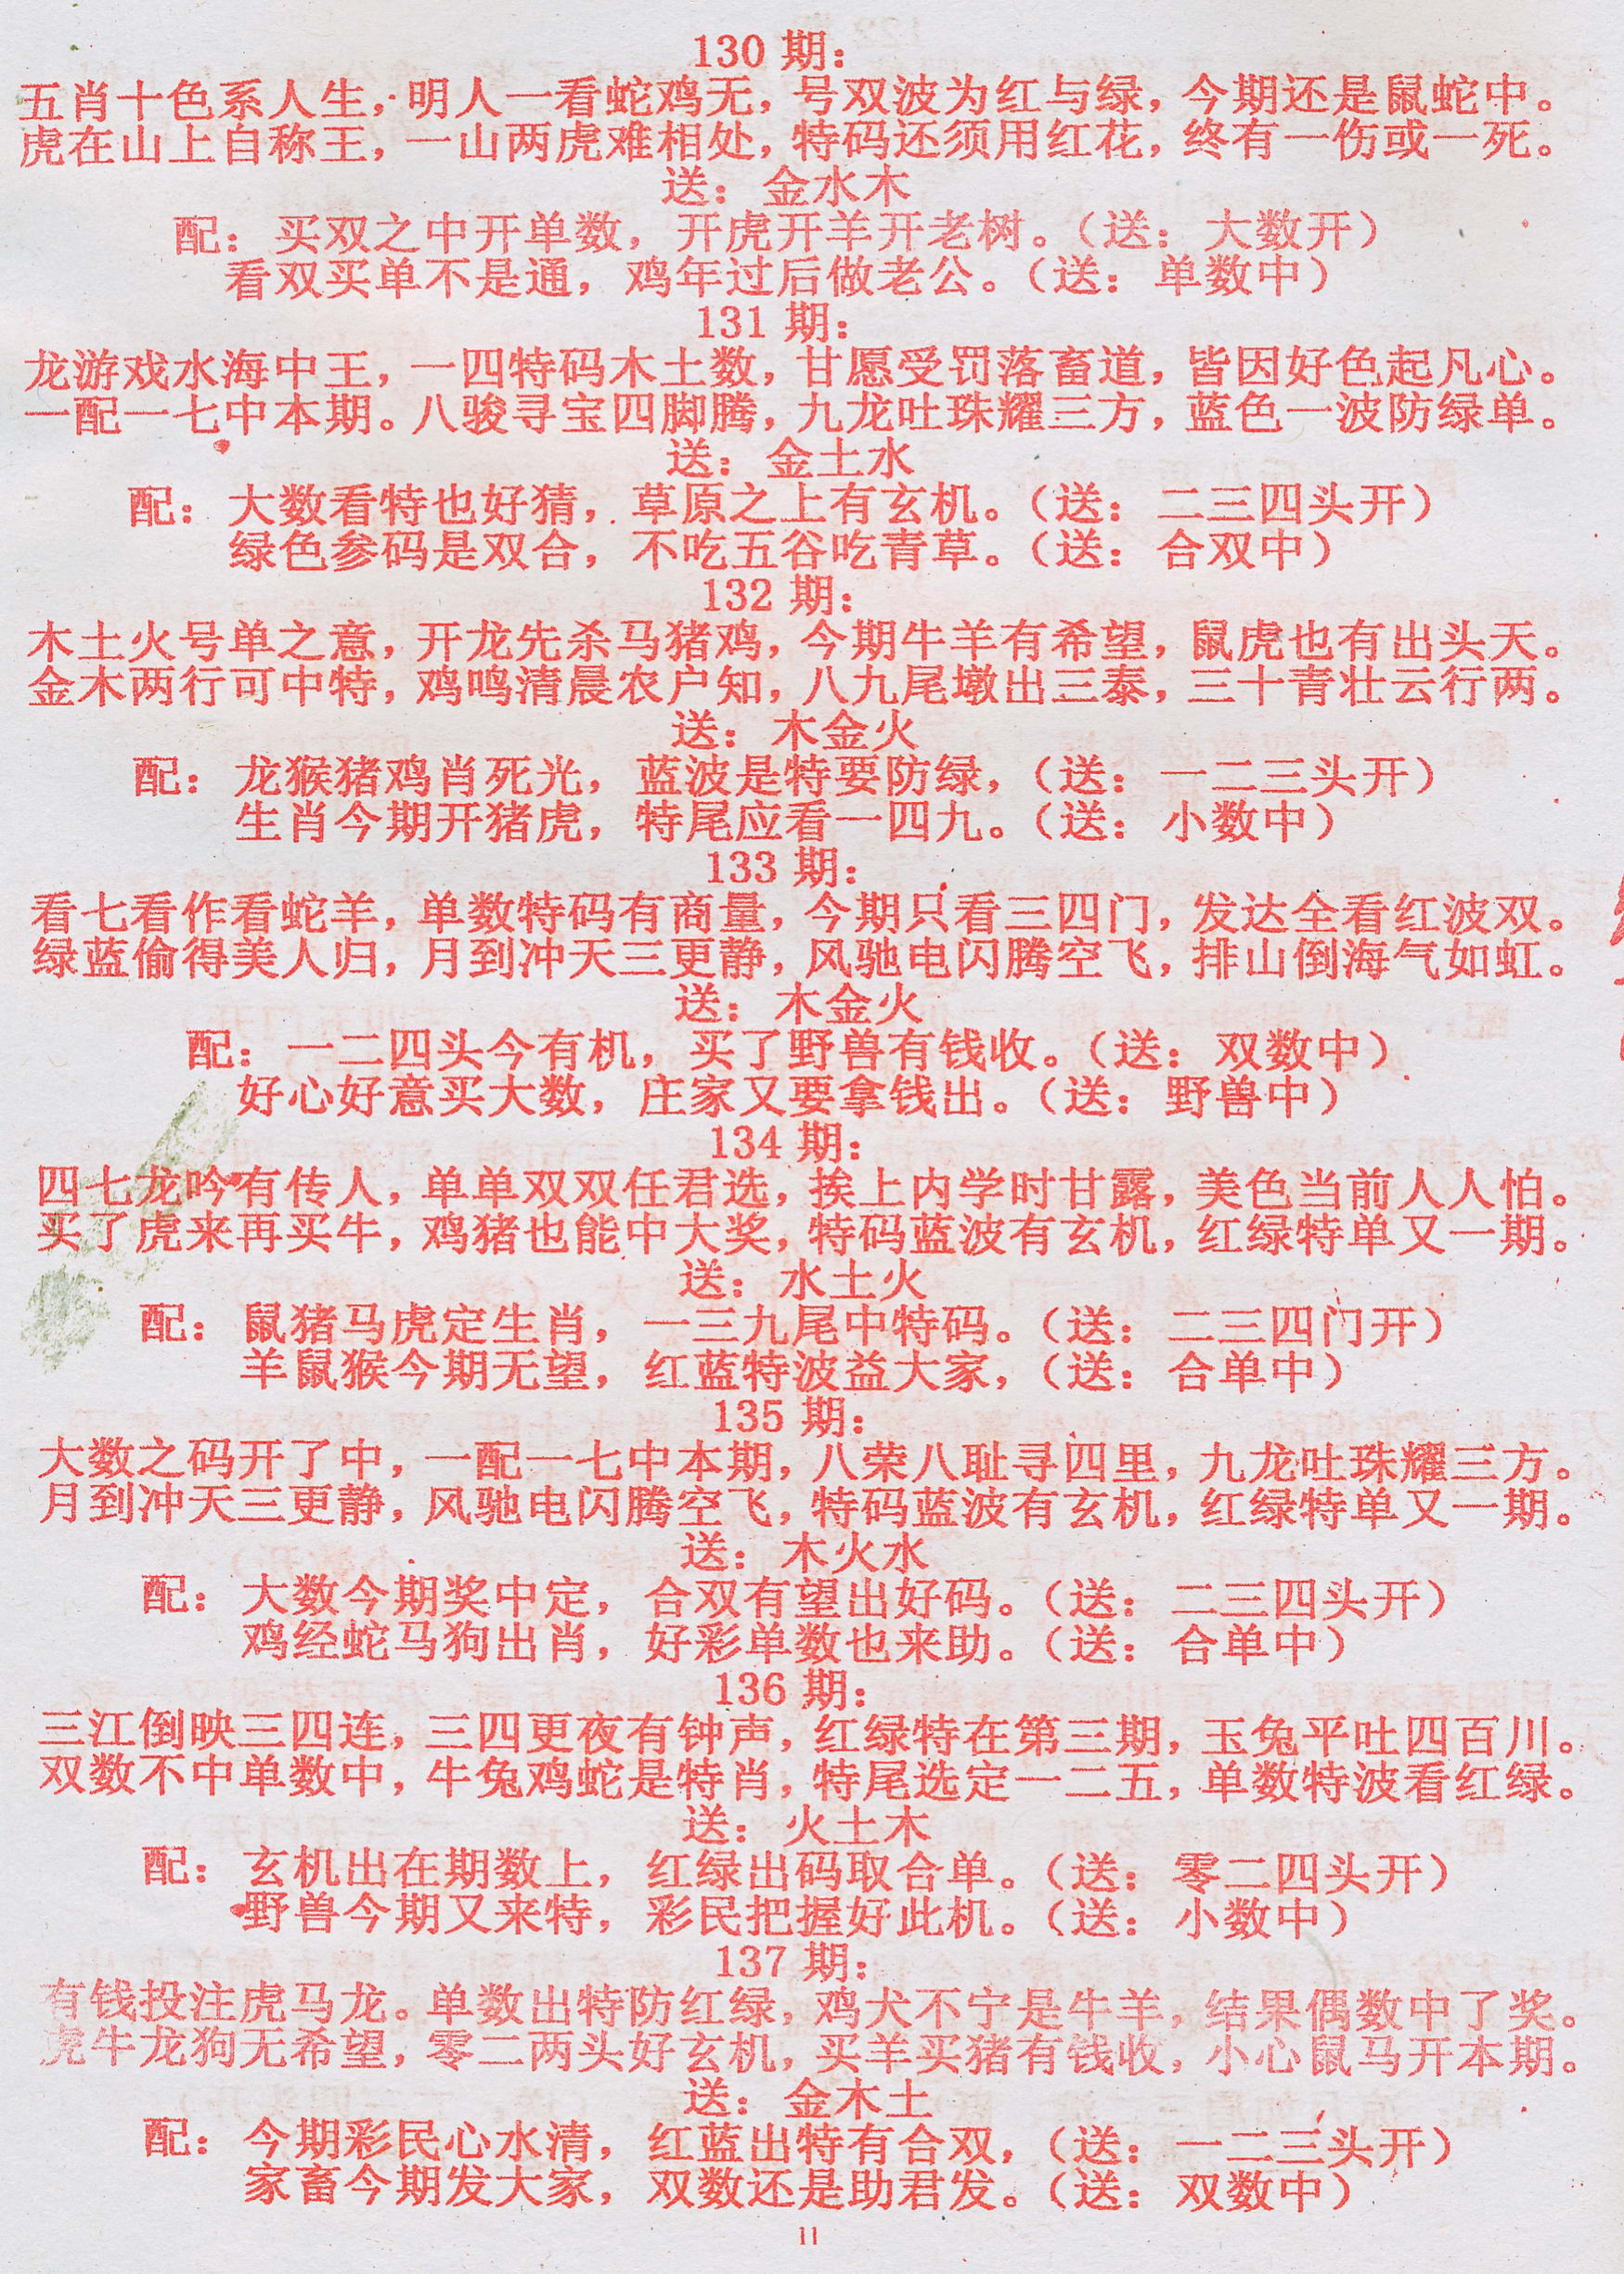 130 期：
五肖十色系人生，明人一看蛇鸡无，号双波为红与绿，今期还是鼠蛇中。
虎在山上自称王，一山两虎难相处，特码还须用红花，终有一伤或一死。
送：金水木
配：买双之中开单数，开虎开羊开老树。（送：大数开）
看双买单不是通，鸡年过后做老公。（送：单数中）
131 期：
龙游戏水海中王，一四特码木土数，甘愿受罚落畜道，皆因好色起凡心。
一配一七中本期。八骏寻宝四脚腾，九龙吐珠耀三方，蓝色一波防绿单。
送：金土水
配：大数看特也好猜，草原之上有玄机。（送：二三四头开）
绿色参码是双合，不吃五谷吃青草。（送：合双中）
132 期：
木土火号单之意，开龙先杀马猪鸡，今期牛羊有希望，鼠虎也有出头天。
金木两行可中特，鸡鸣清晨农户知，八九尾墩出三泰，三十青壮云行两。
送：木金火
配：龙猴猪鸡肖死光，蓝波是特要防绿，（送：一二三头开）
生肖今期开猪虎，特尾应看一四九。（送：小数中）
133 期：
看七看作看蛇羊，单数特码有商量，今期只看三四门，发达全看红波双。
绿蓝偷得美人归，月到冲天三更静，风驰电闪腾空飞，排山倒海气如虹。
送：木金火
配：一二四头今有机，买了野兽有钱收。（送：双数中）
好心好意买大数，庄家又要拿钱出。（送：野兽中）
134 期：
四七龙吟有传人，单单双双任君选，挨上内学时甘露，美色当前人人怕。
买了虎来再买牛，鸡猪也能中大奖，特码蓝波有玄机，红绿特单又一期。
送：水土火
配：鼠猪马虎定生肖，一三九尾中特码。（送：二三四门开）
羊鼠猴今期无望，红蓝特波益大家，（送：合单中）
135 期：
大数之码开了中，一配一七中本期，八荣八耻寻四里，九龙吐珠耀三方。
月到冲天三更静，风驰电闪腾空飞，特码蓝波有玄机，红绿特单又一期。
送：木火水
配：大数今期奖中定，合双有望出好码。（送：二三四头开）
鸡经蛇马狗出肖，好彩单数也来助。（送：合单中）
136 期：
三江倒映三四连，三四更夜有钟声，红绿特在第三期，玉兔平吐四百川。
双数不中单数中，牛兔鸡蛇是特肖，特尾选定一二五，单数特波看红绿。
送：火土木
配：玄机出在期数上，红绿出码取合单。（送：零二四头开）
野兽今期又来特，彩民把握好此机。（送：小数中）
137 期：
有钱投注虎马龙。单数出特防红绿，鸡犬不宁是牛羊，结果偶数中了奖。
虎牛龙狗无希望，零二两头好玄机，买羊买猪有钱收，小心鼠马开本期。
送：金木土
配：今期彩民心水清，红蓝出特有合双，（送：一二三头开）
家畜今期发大家，双数还是助君发。（送：双数中）
11